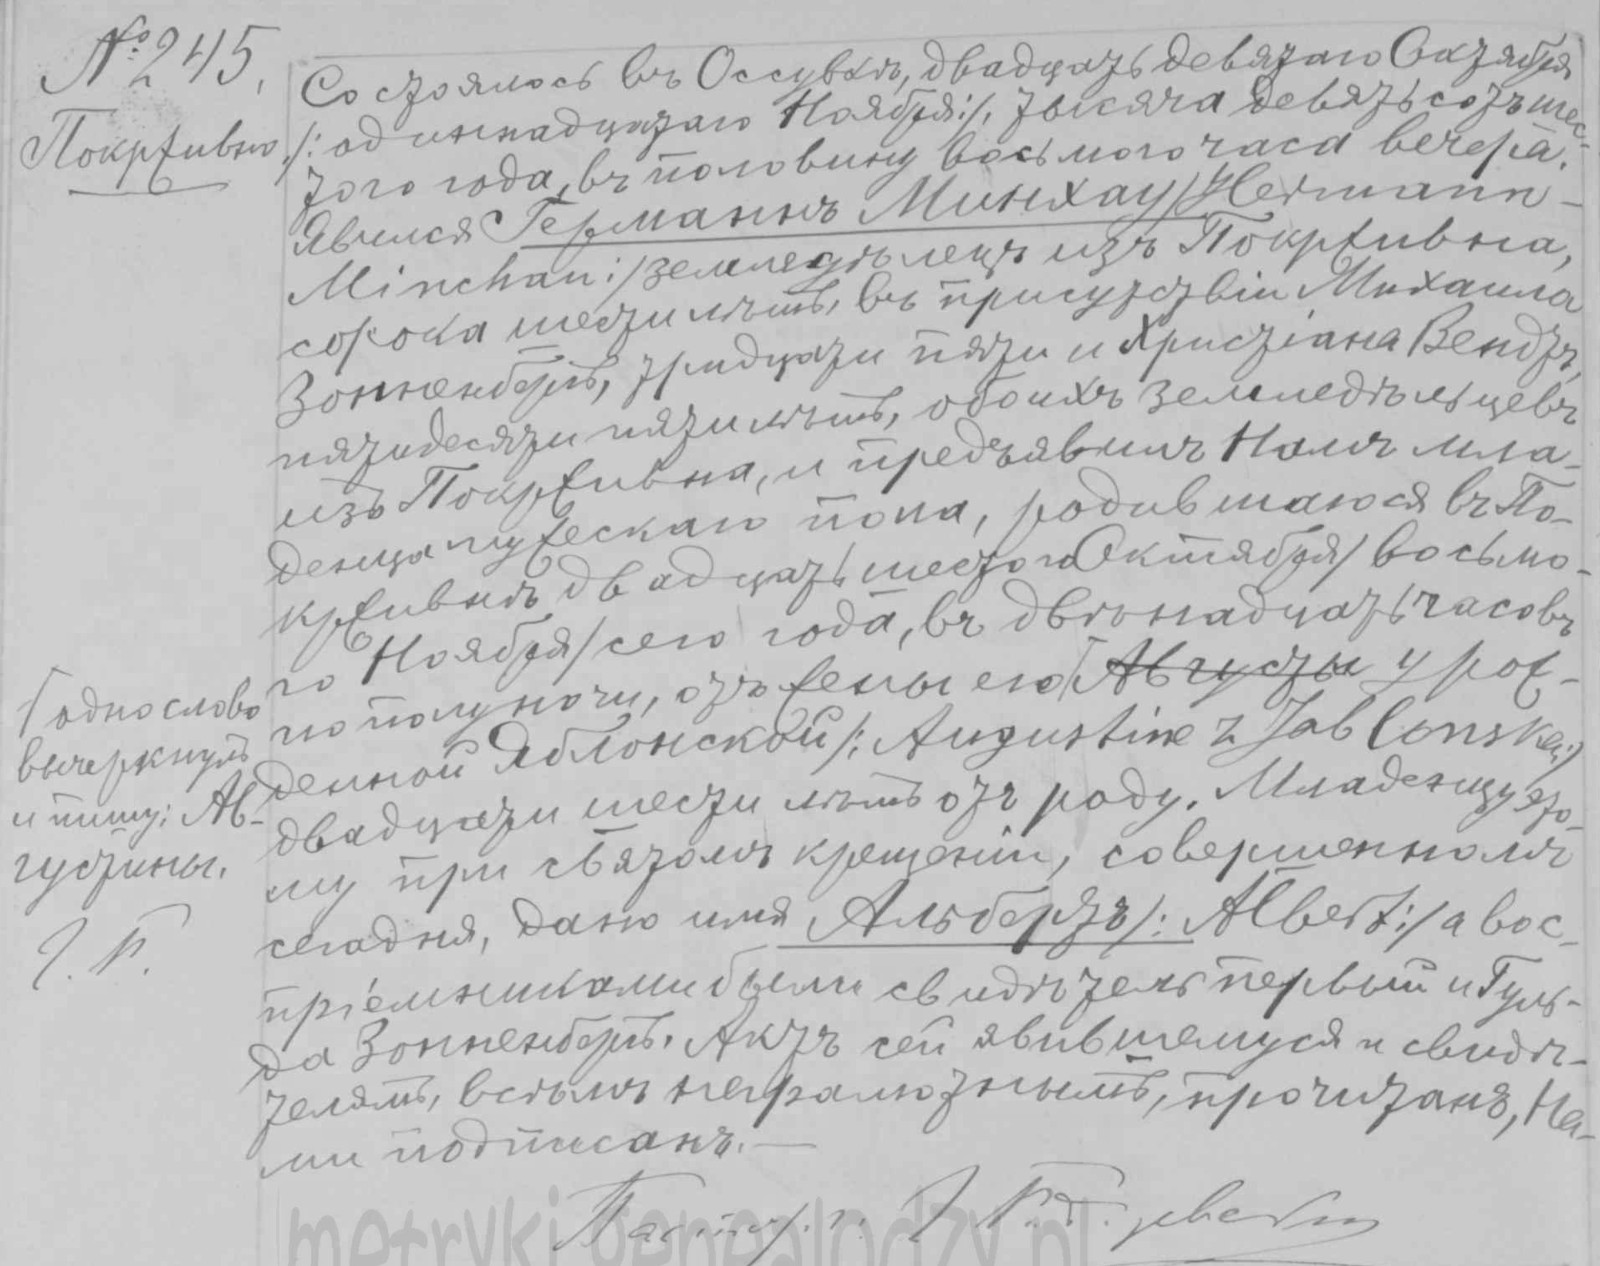 № 245.
Покрживно.
Состоялось въ Оссувкѣ, двадцать девятаго Октября
/: одиннадцатаго Ноября :/, тысяча девятьсотъ шес-
того года, въ половину восьмого часа вечера.
Явился Германнъ Минхау /: Hermann
Minchau :/ земледѣлецъ изъ Покрживна,
сорока шести лѣтъ, въ присутствіи Михаила
Зонненбергъ, тридцати пяти и Христіана Вендтъ,
пятидесяти пяти лѣтъ, обоихъ земледѣльцевъ
изъ Покрживна, и предъявилъ Намъ мла-
денца мужескаго пола, родившагося въ По-
крживнѣ двадцать шестого Октября / восьмо-
го Ноября / сего года, въ двѣнадцать часовъ
по полуночи, отъ жены его Августы урож-
денной Яблонской /: Augustine z Jablonska :/
двадцати шести лѣтъ отъ роду. Младенцу это-
му при святомъ крещеніи, совершенномъ
сегодня, дано имя Альбертъ /: Albert :/ а вос-
пріемниками были свидѣтель первый и Гуль-
да Зонненбергъ. Актъ сей явившемуся и свидѣ-
телямъ, всѣмъ неграмотнымъ, прочитанъ, На-
ми подписанъ. —
Г одно слово
вычеркнулъ
и пишу: Ав-
густины.
Пасторъ
metryki.genealodzy.pl